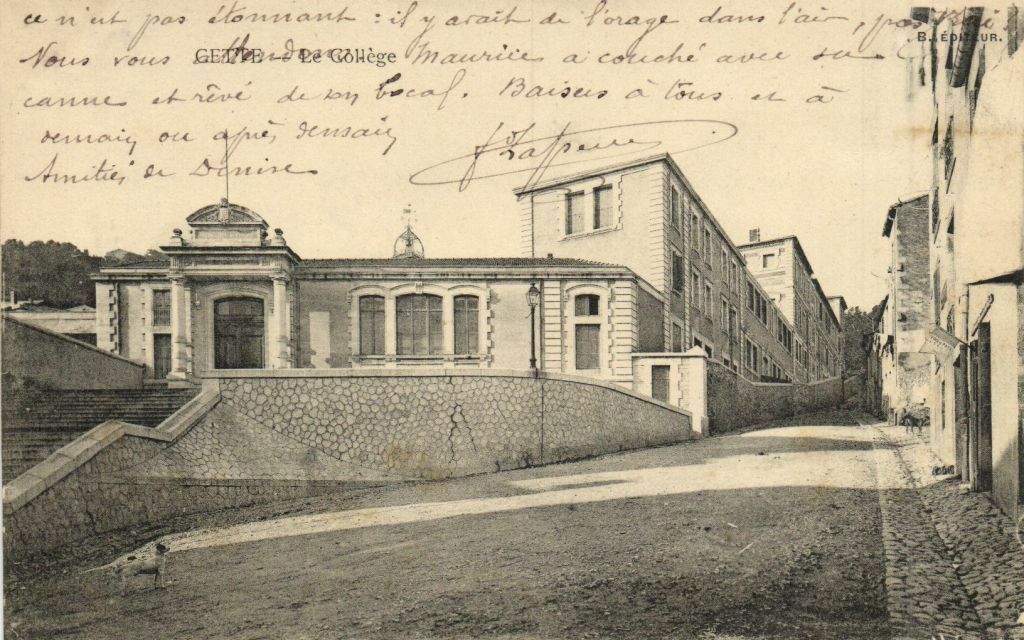 ce n'est pas étonnant : il y avait de l'orage dans l'air,
B. ÉDITEUR.
CETTE - Le Collège
Nous vous Maurice a couché avec sa
canne et rêvé de son bocal. Baisers à tous et à
demain ou après demain
Amitiés de Denise